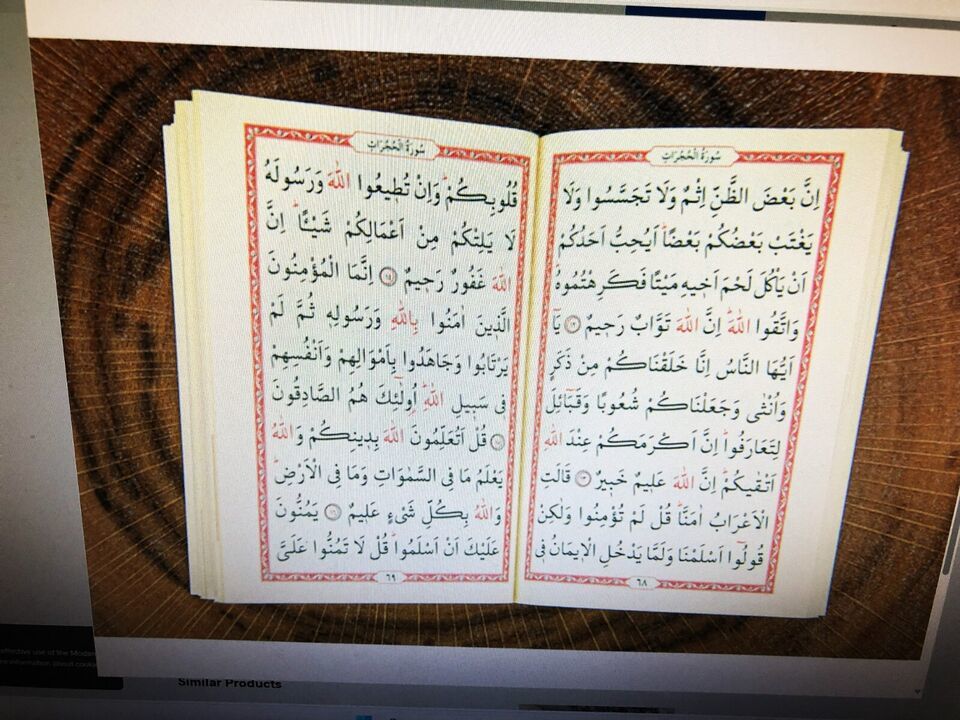 سُورَةُ الْحُجُرَاتِ
اِنَّ بَعْضَ الظَّنِّ اِثْمٌ وَلَا تَجَسَّسُوا وَلَا
يَغْتَبْ بَعْضُكُمْ بَعْضًاۜ اَيُحِبُّ اَحَدُكُمْ
اَنْ يَأْكُلَ لَحْمَ اَخ۪يهِ مَيْتًا فَكَرِهْتُمُوهُۜ
وَاتَّقُوا اللّٰهَۜ اِنَّ اللّٰهَ تَوَّابٌ رَح۪يمٌ ﴿١٢﴾ يَٓا
اَيُّهَا النَّاسُ اِنَّا خَلَقْنَاكُمْ مِنْ ذَكَرٍ
وَاُنْثٰى وَجَعَلْنَاكُمْ شُعُوبًا وَقَبَٓائِلَ
لِتَعَارَفُواۜ اِنَّ اَكْرَمَكُمْ عِنْدَ اللّٰهِ
اَتْقٰيكُمْۜ اِنَّ اللّٰهَ عَل۪يمٌ خَب۪يرٌ ﴿١٣﴾ قَالَتِ
الْاَعْرَابُ اٰمَنَّاۜ قُلْ لَمْ تُؤْمِنُوا وَلٰكِنْ
قُولُٓوا اَسْلَمْنَا وَلَمَّا يَدْخُلِ الْا۪يمَانُ ف۪ي
٦٨
سُورَةُ الْحُجُرَاتِ
قُلُوبِكُمْۜ وَاِنْ تُط۪يعُوا اللّٰهَ وَرَسُولَهُ
لَا يَلِتْكُمْ مِنْ اَعْمَالِكُمْ شَيْـًٔاۜ اِنَّ
اللّٰهَ غَفُورٌ رَح۪يمٌ ﴿١٤﴾ اِنَّمَا الْمُؤْمِنُونَ
الَّذ۪ينَ اٰمَنُوا بِاللّٰهِ وَرَسُولِه۪ ثُمَّ لَمْ
يَرْتَابُوا وَجَاهَدُوا بِاَمْوَالِهِمْ وَاَنْفُسِهِمْ
ف۪ي سَب۪يلِ اللّٰهِۜ اُو۬لٰٓئِكَ هُمُ الصَّادِقُونَ
﴿١٥﴾ قُلْ اَتُعَلِّمُونَ اللّٰهَ بِد۪ينِكُمْ وَاللّٰهُ
يَعْلَمُ مَا فِي السَّمٰوَاتِ وَمَا فِي الْاَرْضِۜ
وَاللّٰهُ بِكُلِّ شَيْءٍ عَل۪يمٌ ﴿١٦﴾ يَمُنُّونَ
عَلَيْكَ اَنْ اَسْلَمُواۜ قُلْ لَا تَمُنُّوا عَلَيَّ
٦٩
effective use of the
information about cookie
Similar Products